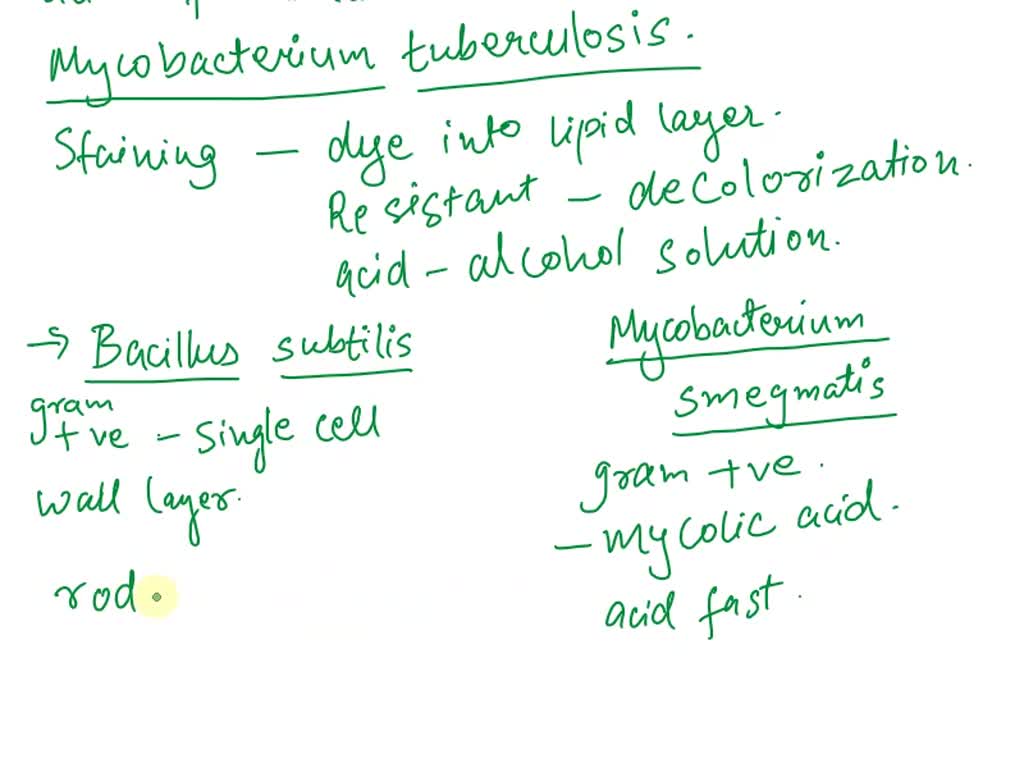 Mycobacterium tuberculosis.
Staining - dye into lipid layer.
Resistant - decolorization.
acid - alcohol solution.
→ Bacillus subtilis
gram
+ve - single cell
wall layer.
rod
Mycobacterium
smegmatis
gram +ve.
- mycolic acid.
acid fast.